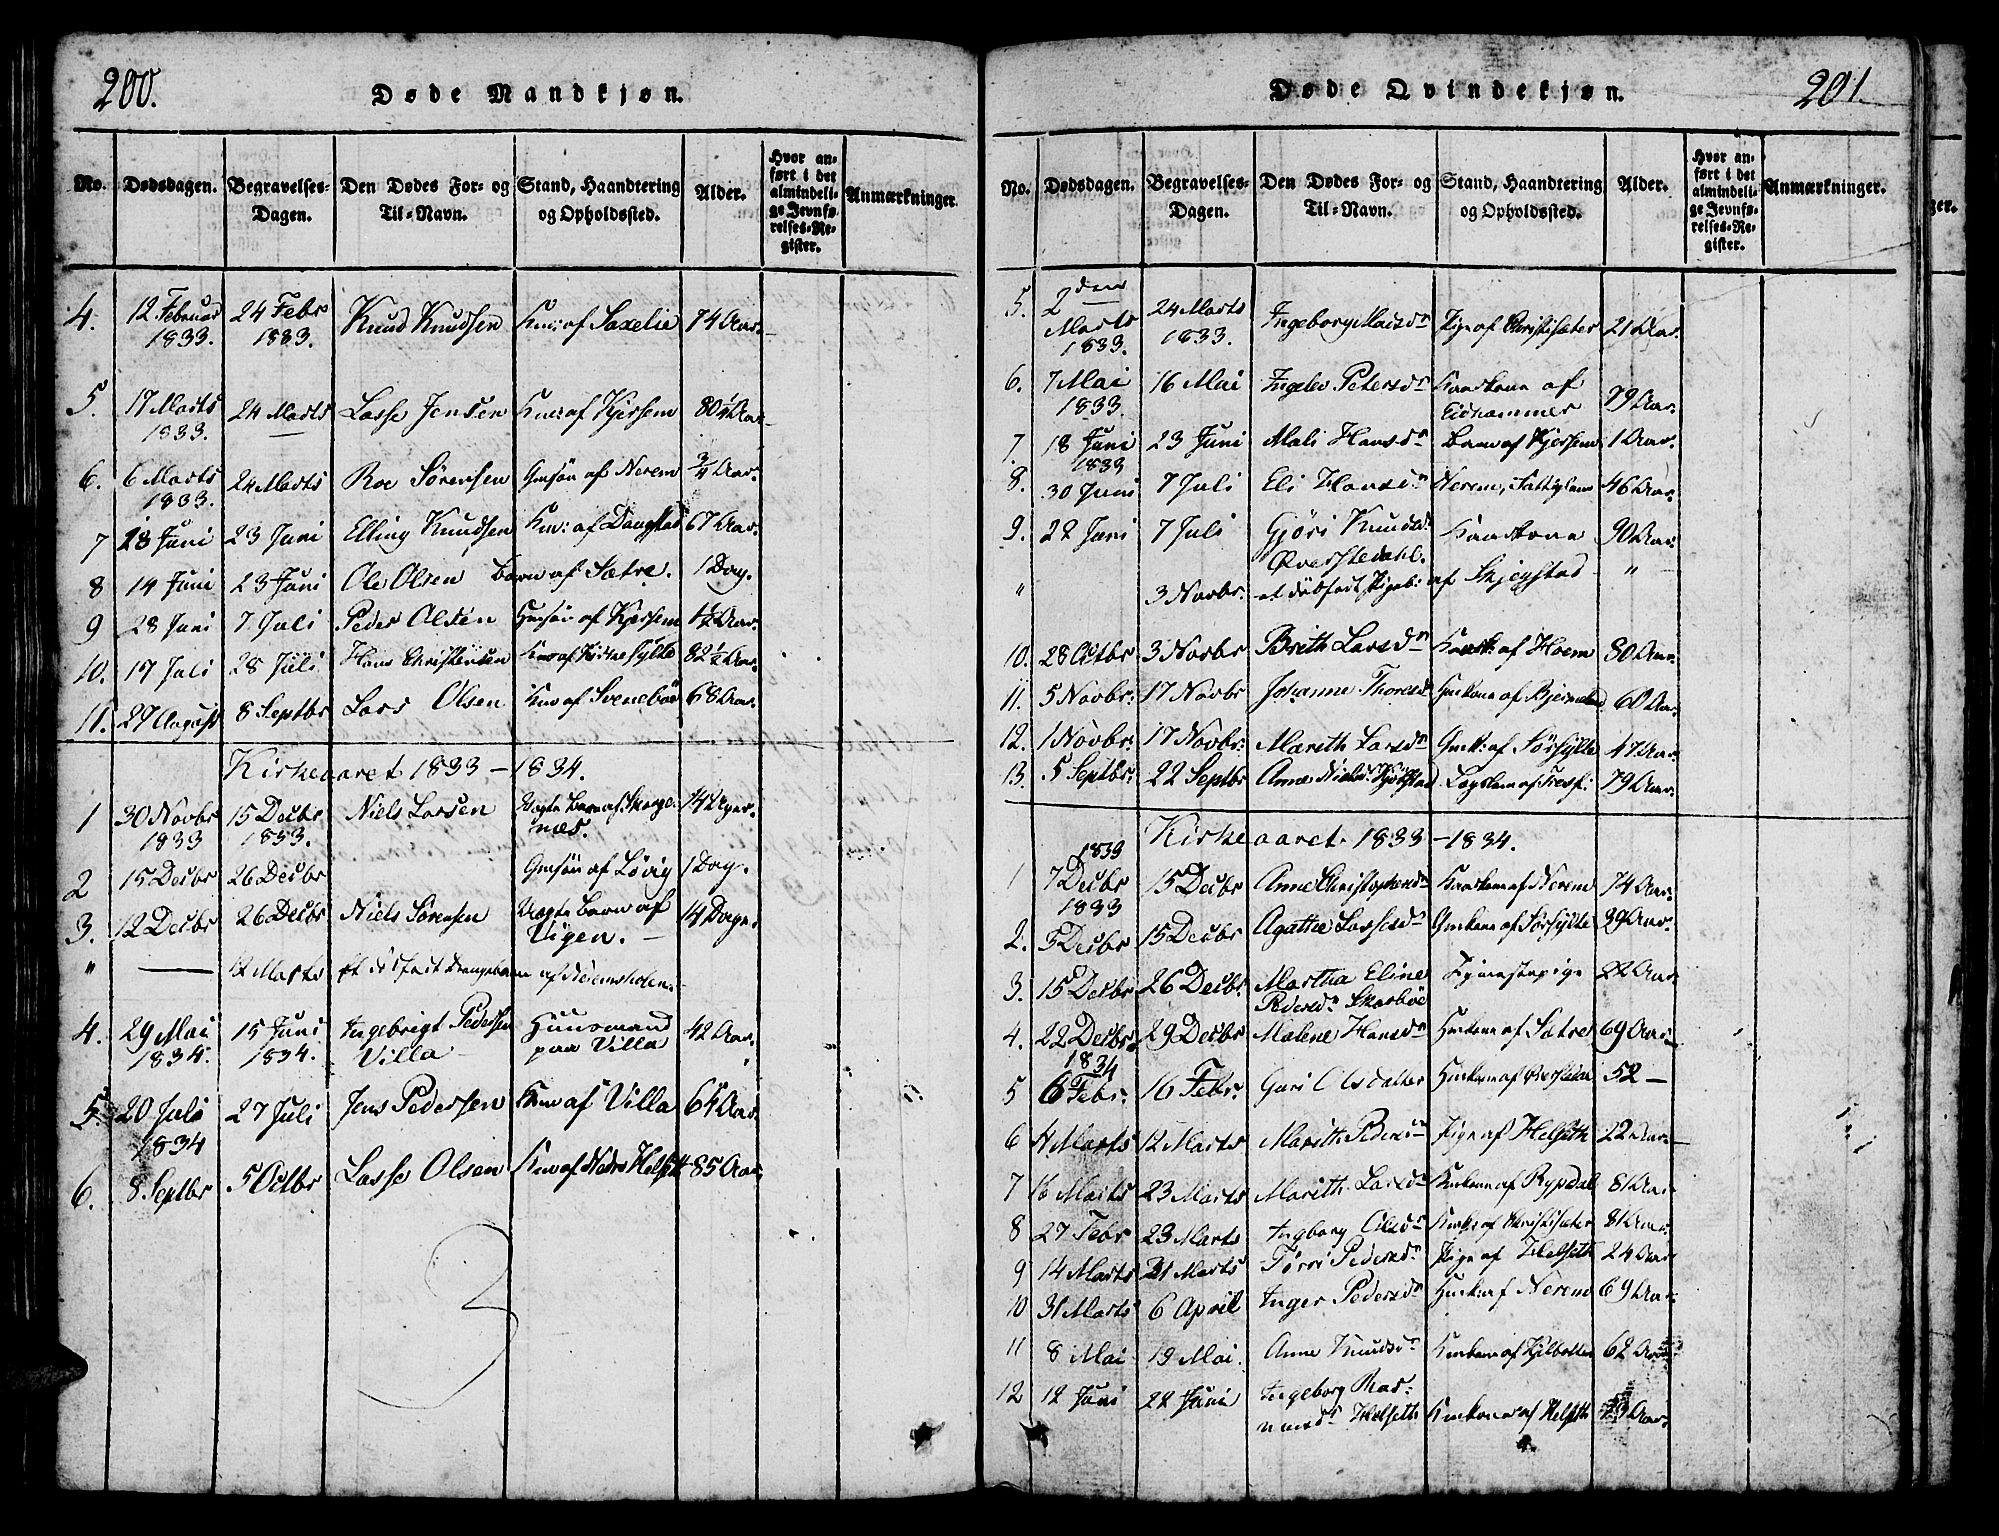 200.
Døde Mandkjøn.
No. Dødsdagen. Begravelses-Dagen. Den Dødes For- og Til-Navn. Stand, Haandtering og Opholdssted. Alder. Hvor anført i det almindelige Jevnførelses-Register. Anmærkninger
4. 12 Februar 1833. 24 Febr 1833. Knud Knudsen Knr: af Saxelie 74 Aar.
5. 17 Marts 1833. 24 Marts Lasse Jensen Knr af Kjersem 80¼ Aar
6. 6 Marts 1833. 24 Marts Roe Sørensen Gmsøn af Nerem ¾ Aar.
7 18 Juni 23 Juni Elling Knudsen Knr: af Daugstad 67 Aar.
8 14 Juni 23 Juni Ole Olsen Barn af Sætre. 1 Dag.
9 28 Juni 7 Juli Peder Olsen Hmsøn af Kjersem 1½ Aar.
10. 17 Juli 28 Juli Hans Christensen Knr af Sylte 82½ Aar
11. 27 August 8 Septbr Lars Olsen Knr af Svenebøe 68 Aar.
Kirkeaaret 1833 - 1834.
1 30 Novbr 1833 15 Decbr 1833. Niels Larsen Uægte Barn af Skorgenæs. 14 Uger
2 15 Decbr 26 Decbr Gmsøn af Løvig 1 Dag.
3. 12 Decbr 26 Decbr Niels Sørensen Uægte Barn af Vigen. 14 Dage
" — 12 Marts Et dødfødt Drengebarn af
4. 29 Mai 1834. 15 Juni 1834. Ingebrigt Pedersen Villa Huusmand paa Villa 42 Aar.
5. 20 Juli 1834 27 Juli Jens Pedersen Knr af Villa 64 Aar
6. 8 Septbr 5 Octbr Lasse Olsen Knr af Nedre Helseth 85 Aar
201.
Døde Qvindekjøn.
No. Dødsdagen. Begravelses-Dagen. Den Dødes For- og Til-Navn. Stand, Haandtering og Opholdssted. Alder. Hvor anført i det almindelige Jevnførelses-Register. Anmærkninger.
5. 2den Marts 1833. 24 Marts 1833. Ingeborg Madsdr Pige af Christisæter 21 Aar.
6. 7 Mai 1833. 16 Mai Ingelev Petersdr Kaarkone af Eidhammer 79 Aar.
7. 18 Juni 1833 23 Juni Mali Hansdr Barn af Kjersem 1 Aar
8. 30 Juni 7 Juli Eli Hansdr Nerem, Fattiglem 46 Aar
9. 28 Juni 7 Juli Gjøri Knudsdr Øverstedahl. Kaarkone 90 Aar
" 3 Novbr. et dødfødt Pigeb: af Skjegstad "
10. 28 Octbr 3 Novbr Brith Larsdr Kaark: af Hoem 80 Aar
11. 5 Novbr: 17 Novbr Johanne Thoresdr Hmkone af 60 Aar
12. 1 Novbr: 17 Novbr: Mareth Larsdr Gmk: af Sørsylte 47 Aar.
13. 5 Septbr: 22 Septbr Anne Nielsdr Lægslem af Tresf: 79 Aar.
Kirkeaaret 1833 - 1834.
1 1833 7 Decbr 15 Decbr Anne Christophersdr Kaarkone af Nerem 74 Aar
2. 1833 5 Decbr 15 Decbr Agathe Lassesdr Gmkone af Sørsylte 39 Aar.
3. 15 Decbr 26 Decbr. Martha Eline Pedersdr Skarbøe Tjenestepige 22 Aar
4. 22 Decbr 29 Decbr Malene Hansdr Hmkone af Sætre 69 Aar
5 1834 6 Febr. 16 Febr. Guri Olsdatter Hmkone af 52 -
6 4 Marts 12 Marts Marith Pedersdr Pige af Helseth 22 Aar
7 16 Marts 23 Marts Marith Larsdr Kmkone af Rypdal 81 Aar
8 27 Febr 23 Marts Ingborg Olsdr Kmk: af Christisæter 81 Aar
9 14 Marts 31 Marts Pedersdr Pige af Helseth 24 Aar
10 31 Marts 6 April Inger Pedersdr Hmk: af Nerem 69 Aar
11 8 Mai 19 Mai. Anne Knudsdr Kmkone af Kjelbotten 62 Aar
12 12 Juni 22 Juni Ingeborg Rasmusdr Helseth Kmkone af Helseth Aar.